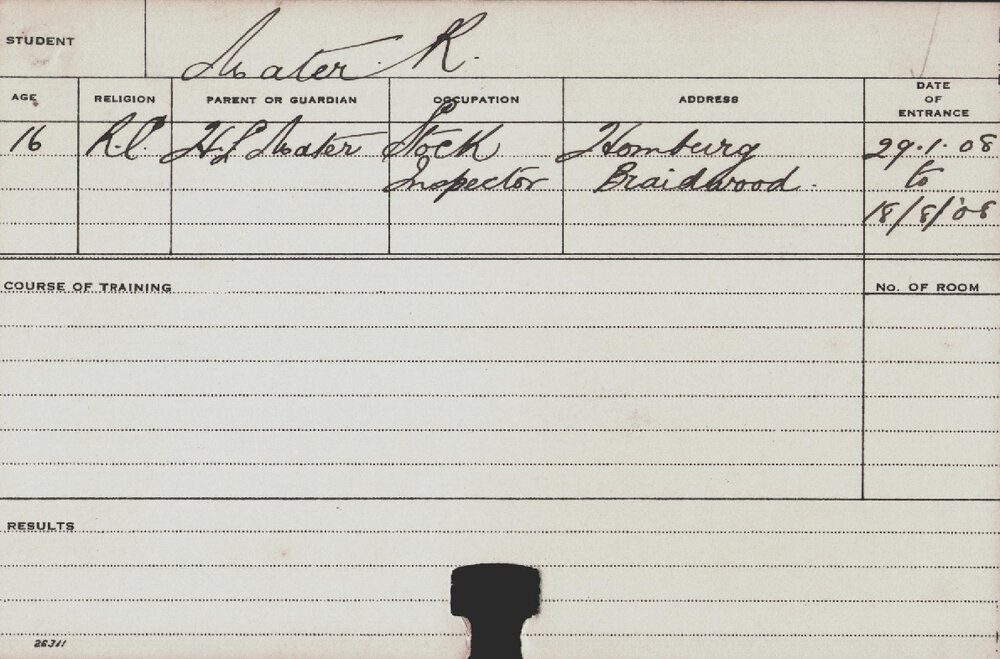 STUDENT
Mater R.
AGE
RELIGION
PARENT OR GUARDIAN
OCCUPATION
ADDRESS
DATE
OF
ENTRANCE
16
R.C.
H L Mater
Stock
Inspector
Homburg
Braidwood.
29.1.08
to
18/8/'08
COURSE OF TRAINING
No. OF ROOM
RESULTS
26311